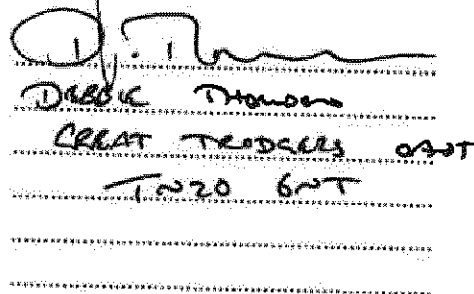 D.J. Th
DEBBIE THOMSON
GREAT TRODGERS OAST
TN20 6NT